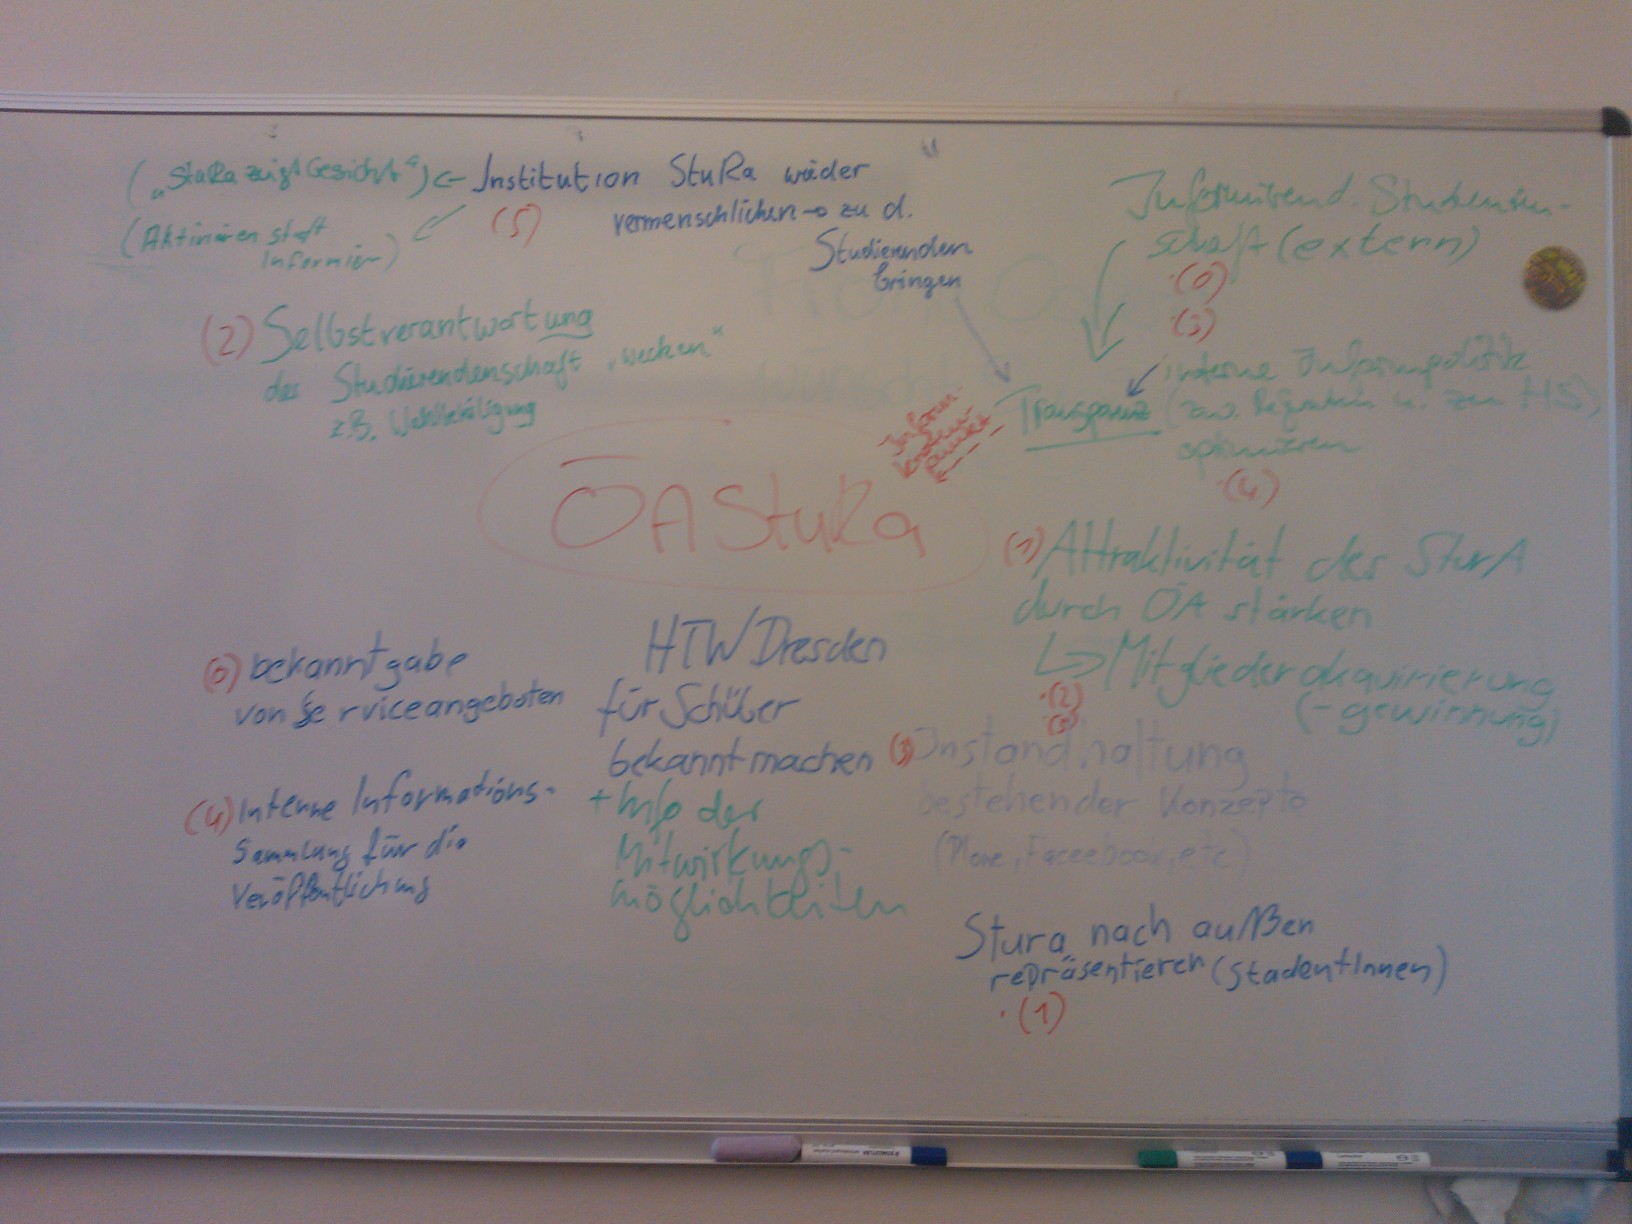 („StuRa zeigt Gesicht“) <- Institution StuRa wieder
(5) vermenschlichen -> zu d.
Studierenden
bringen
(Aktivieren statt
Informier)
(2) Selbstverantwortung
der Studierendenschaft „wecken“
z.B. Wahlbeteiligung
Informirend. Studenten-
schaft (extern)
(0)
(3)
interne Informpolitik
Transparenz (zw. Referaten u. zur HS)
optimieren
(4)
Inform
knoten
punkt
ÖA StuRa
(1) Attraktivität des SturA
durch ÖA stärken
Mitgliederakquirierung
(-gewinnung)
(2)
(6) bekanntgabe
von Serviceangeboten
(4) Interne Informations-
Sammlung für die
Veröffentlichung
HTW Dresden
für Schüler
bekannt machen
+ Info der
Mitwirkungs-
möglichkeiten
(3) Instandhaltung
bestehender Konzepte
(Plone, Faceebook, etc)
Stura nach außen
repräsentieren (StudentInnen)
(1)